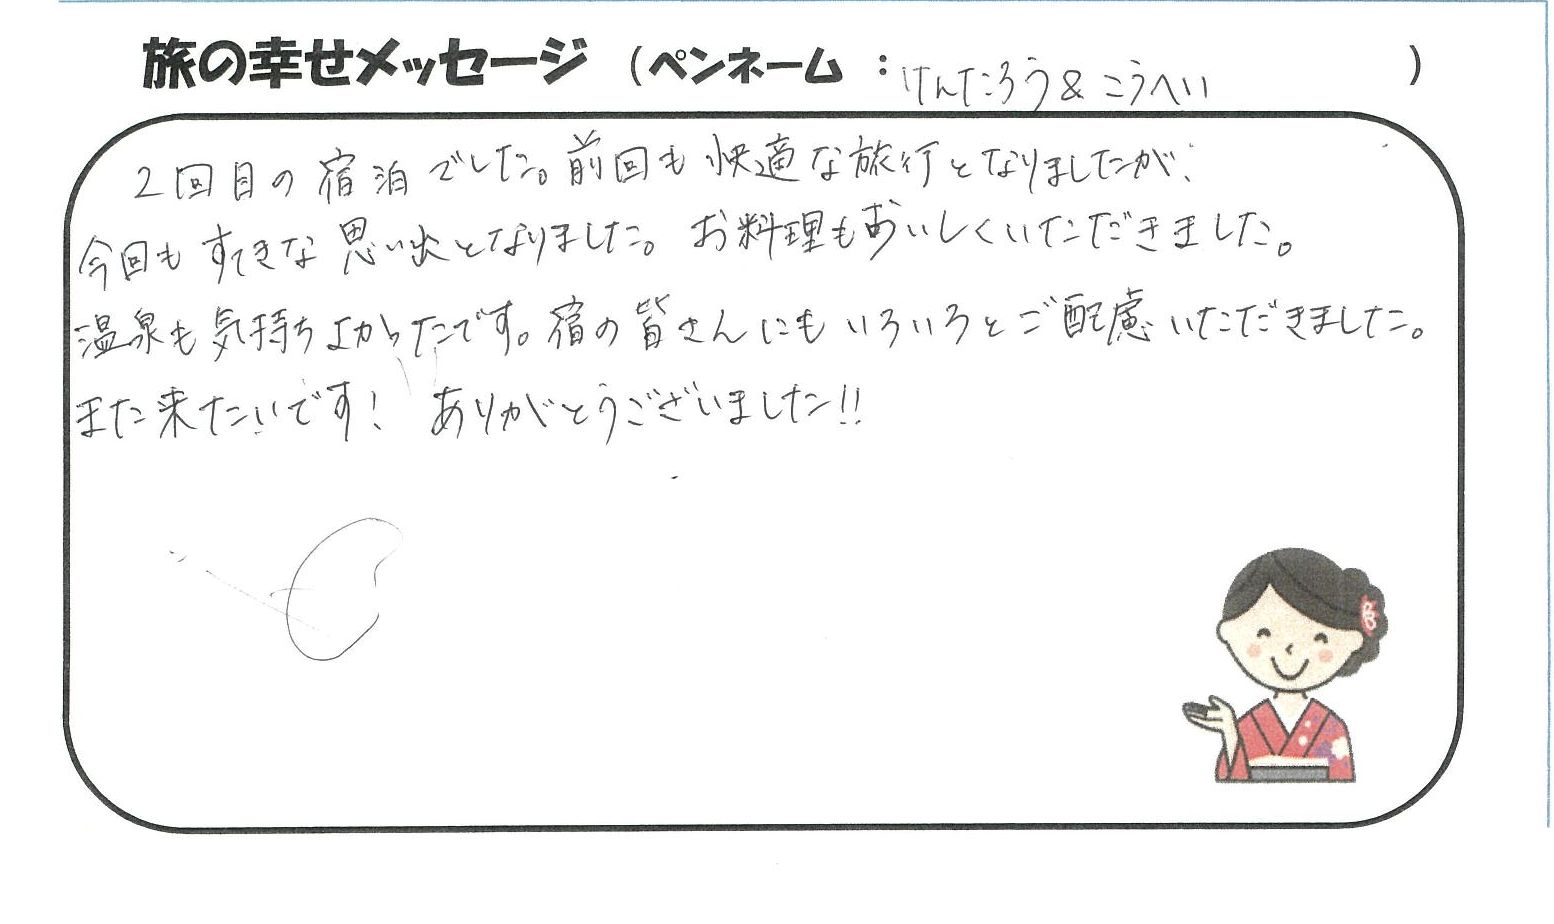 旅の幸せメッセージ （ペンネーム ：けんたろう＆こうへい ）
2回目の宿泊でした。前回も快適な旅行となりましたが、
今回もすてきな思い出となりました。お料理もおいしくいただきました。
温泉も気持ちよかったです。宿の皆さんにもいろいろとご配慮いただきました。
また来たいです！ ありがとうございました!!